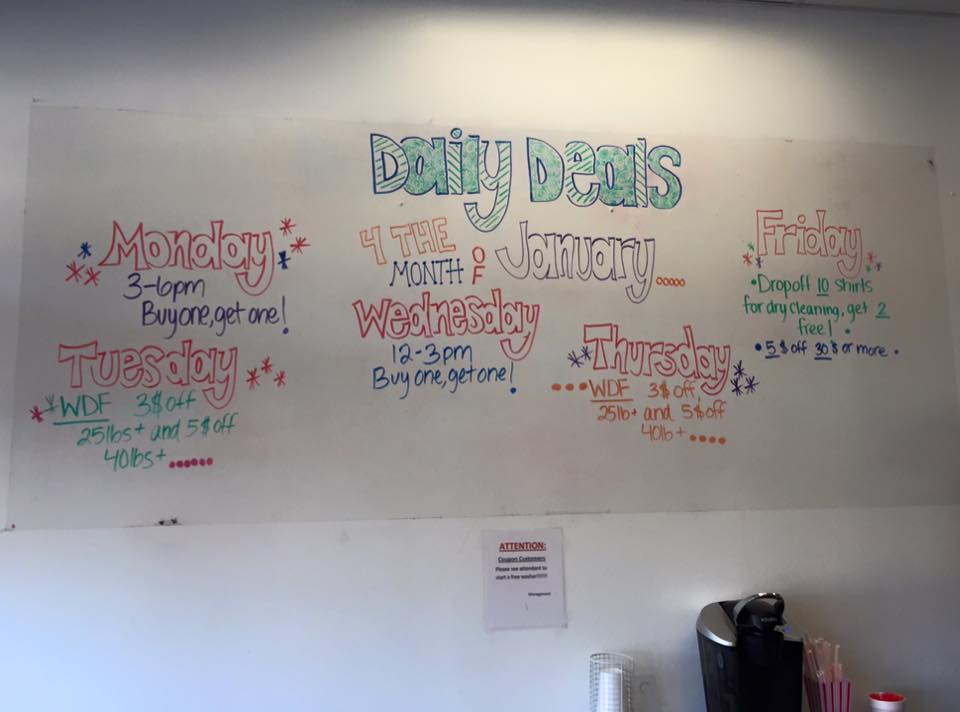 Daily Deals
4 THE
MONTH OF January.....
Monday
3-6pm
Buy one, get one!
Tuesday
WDF 3$ off
25lbs+ and 5$ off
40lbs+ ......
Wednesday
12-3pm
Buy one, get one!
Thursday
...WDF 3$ off,
25lb+ and 5$ off
40lb+ ....
Friday
•Dropoff 10 shirts
for dry cleaning, get 2
free! •
•5$ off 30$ or more •
ATTENTION:
Coupon Customers
Please see attendant to
start a free washer!!!!!!
Management